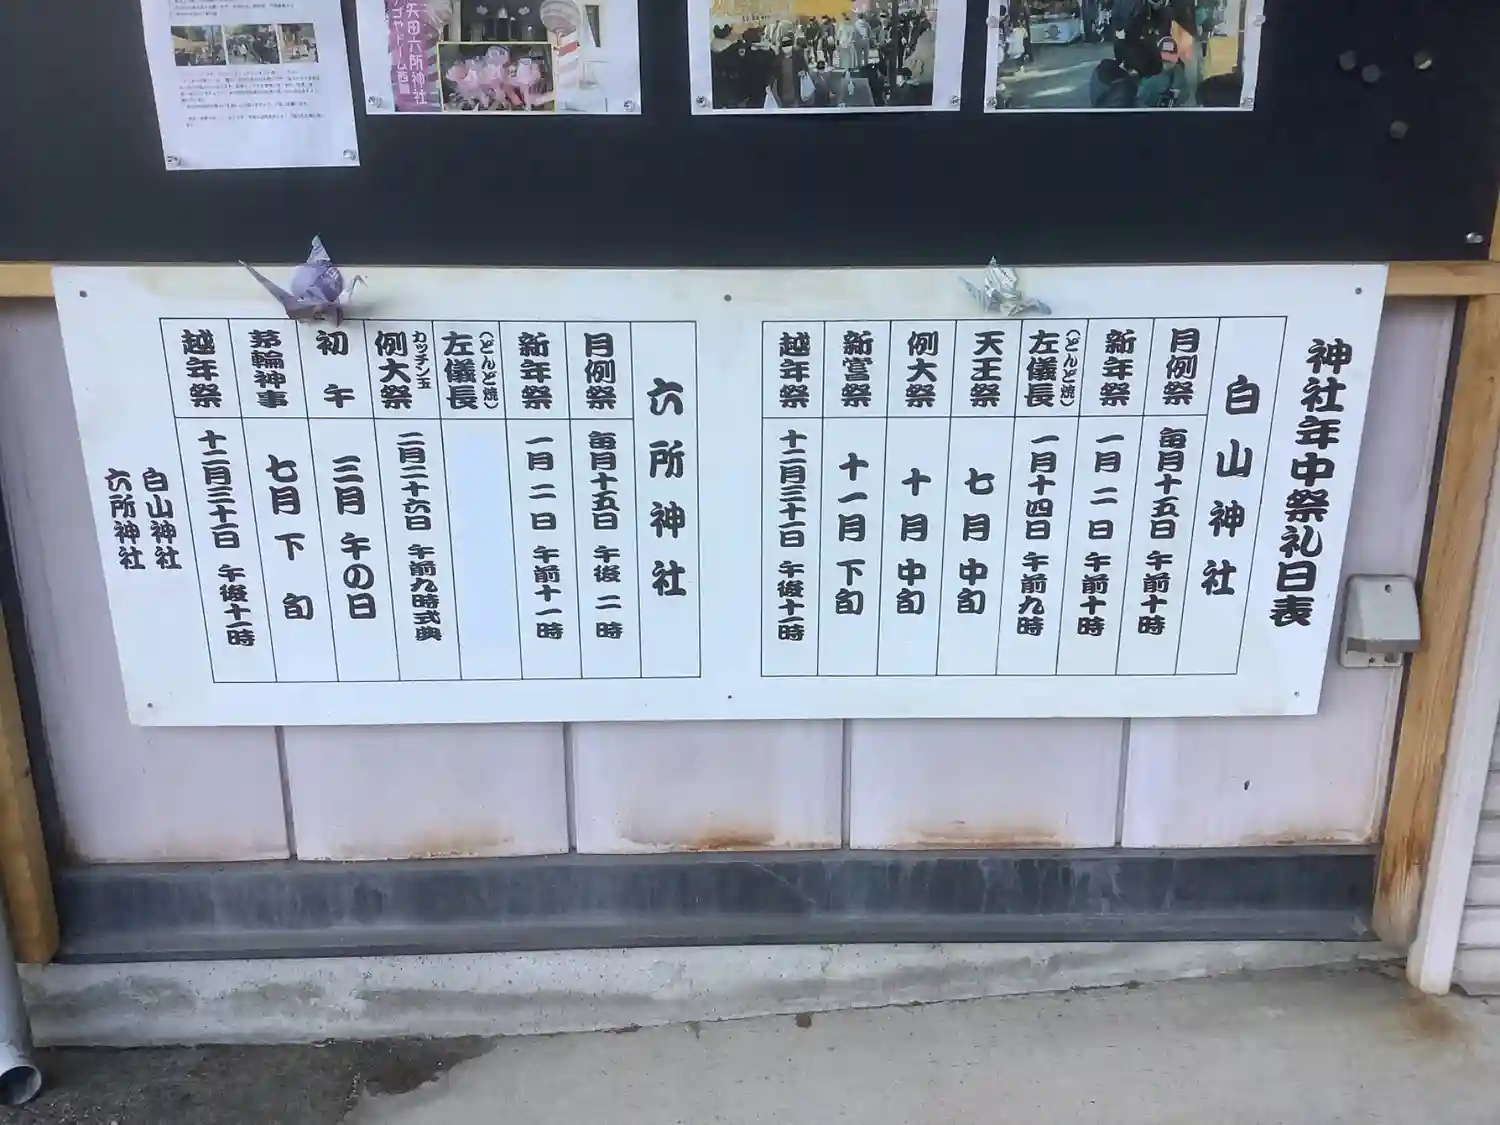 矢田六所神社
ナゴヤドーム西隣
神社年中祭礼日表
白山神社
月例祭 毎月十五日 午前十時
新年祭 一月二日 午前十時
左儀長(どんど焼) 一月十四日 午前九時
天王祭 七月中旬
例大祭 十月中旬
新嘗祭 十一月下旬
越年祭 十二月三十一日 午後十一時
六所神社
月例祭 毎月十五日 午後二時
新年祭 一月二日 午前十一時
左儀長(どんど焼)
カッチン玉
例大祭 二月二十六日 午前九時式典
初午 三月午の日
茅輪神事 七月下旬
越年祭 十二月三十一日 午後十一時
白山神社
六所神社